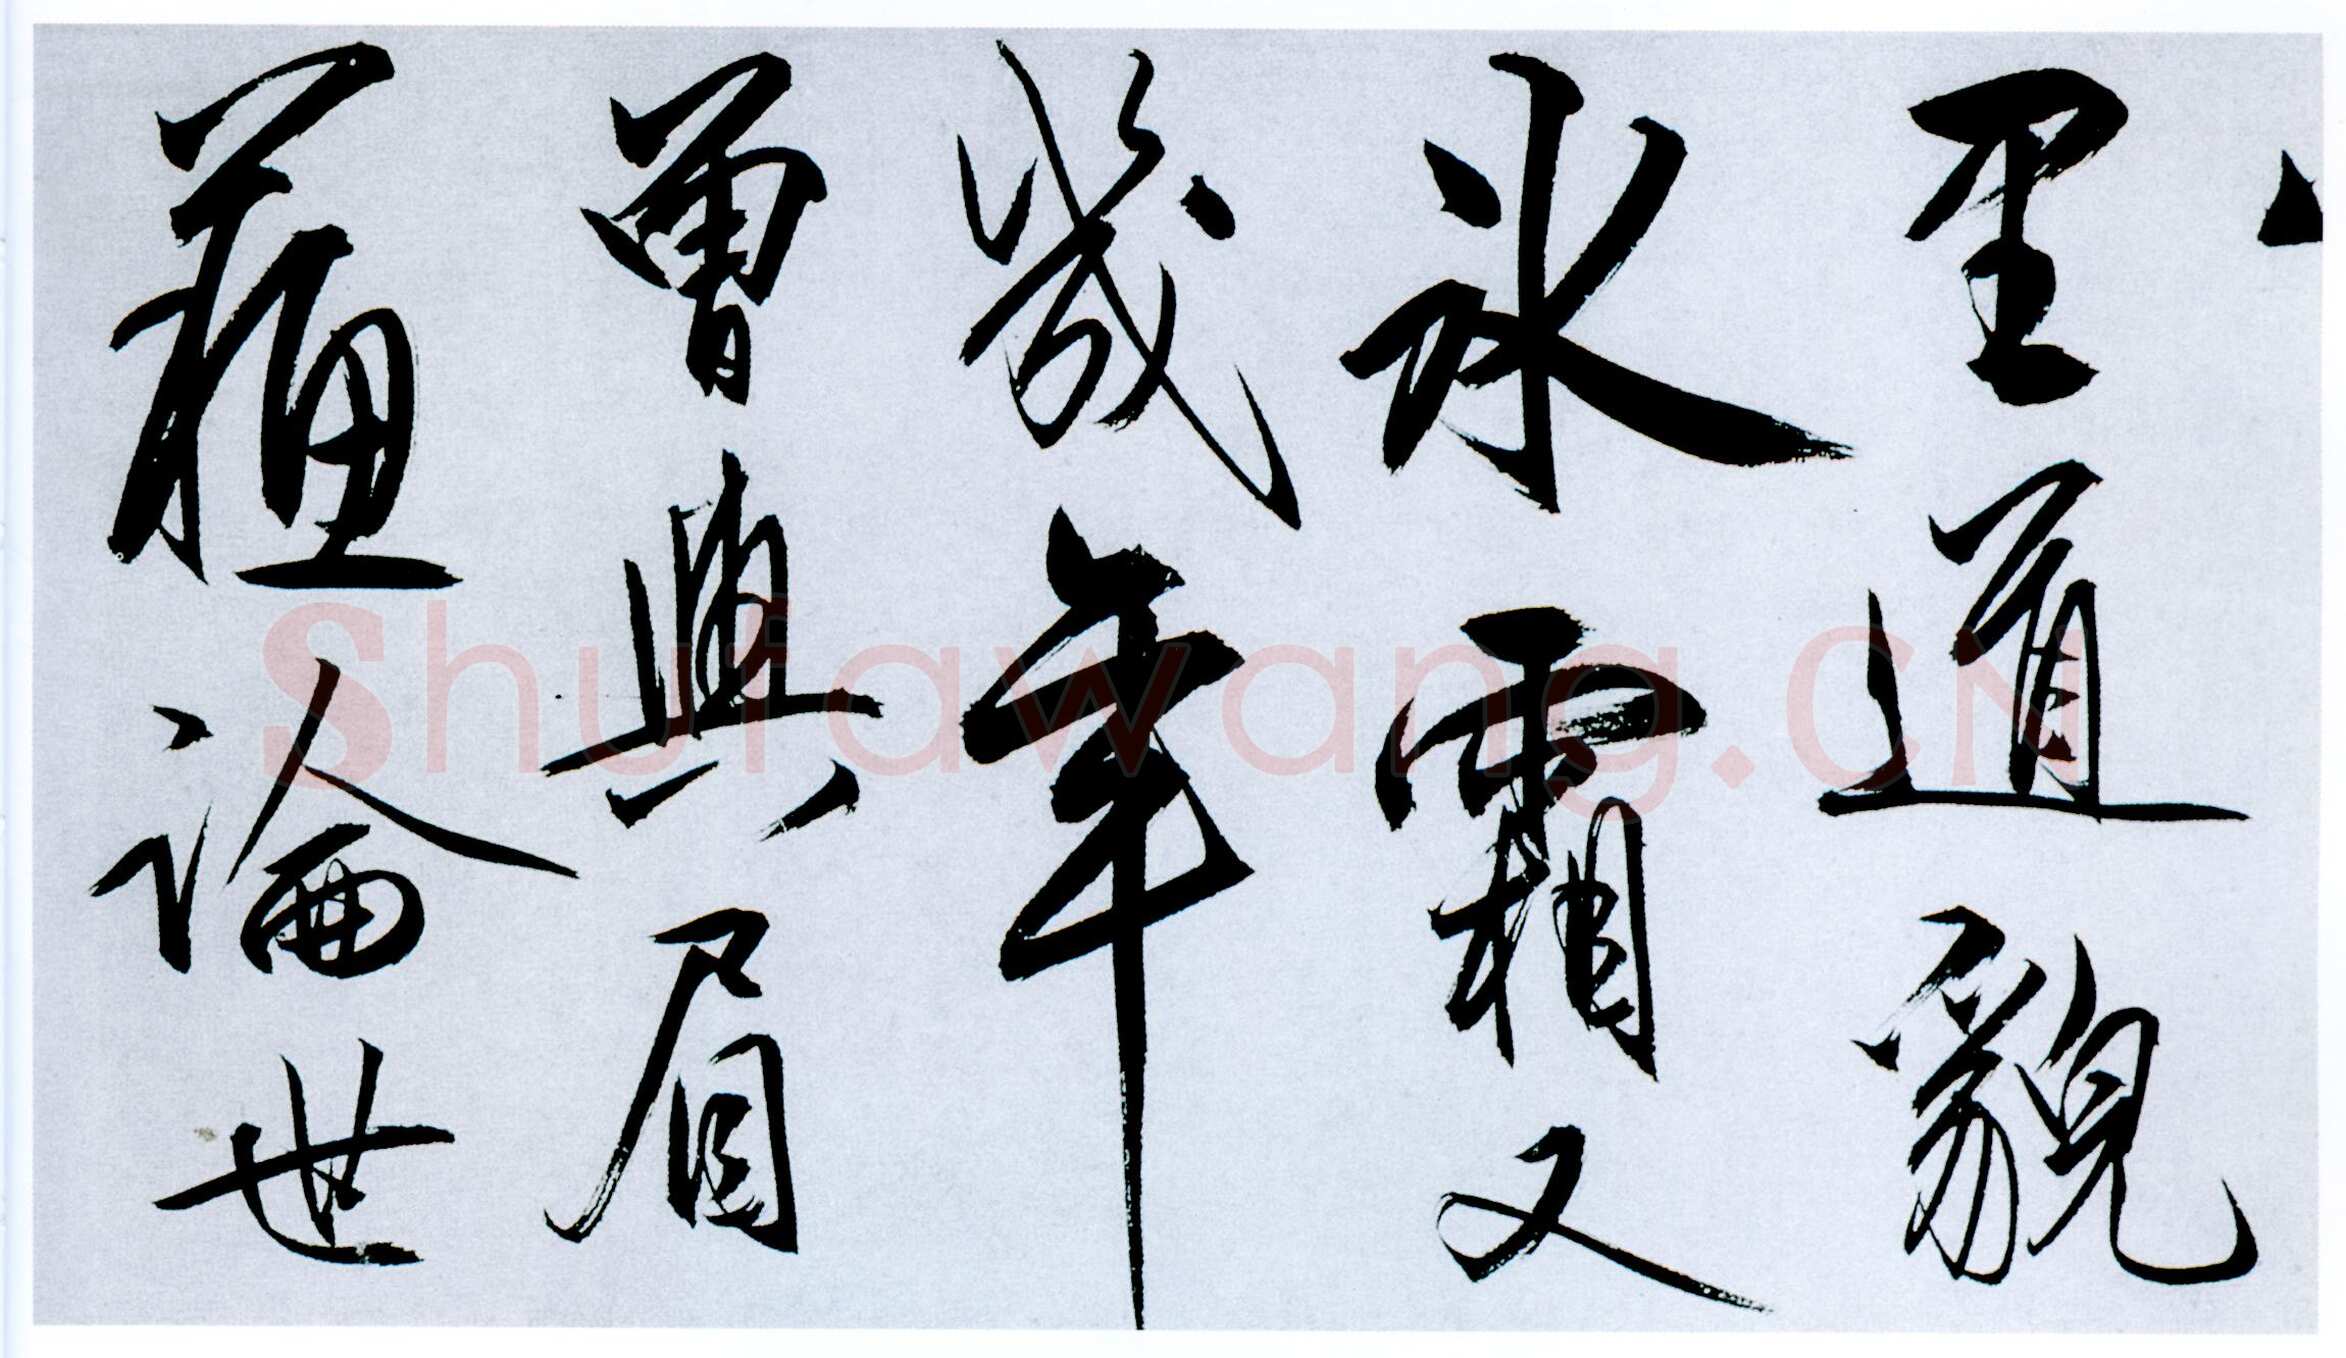 里道貌
氷霜又
幾年
曾與眉
蘇論世
Shufawang.CN